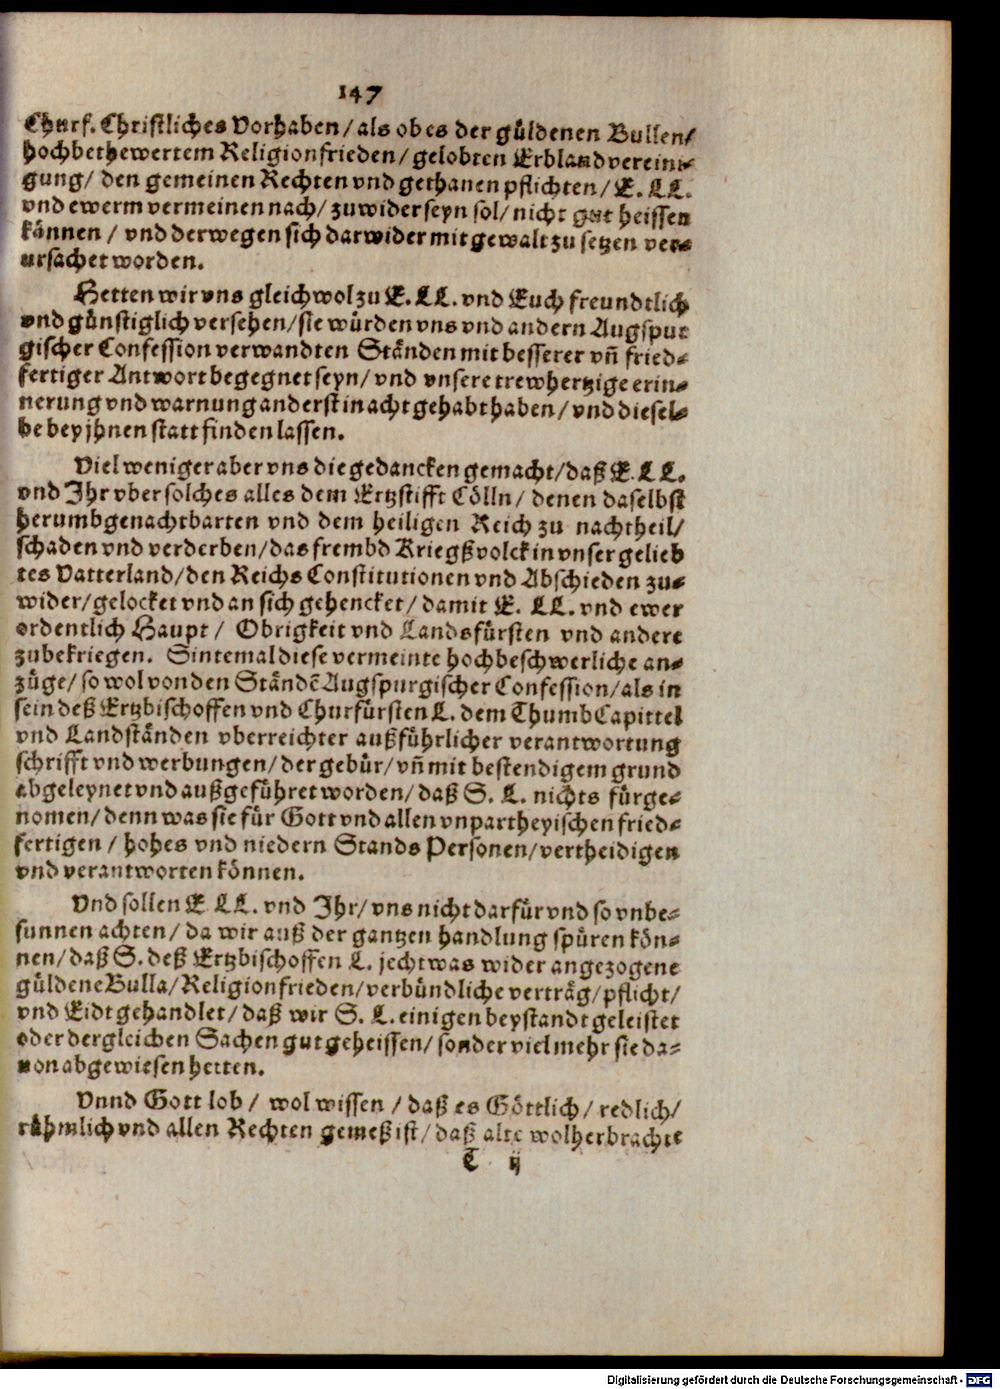 147
Churf. Christliches Vorhaben/ als ob es der güldenen Bullen/
hochbethewertem Religionfrieden/ gelobten Erblandvereini⸗
gung/ den gemeinen Rechten vnd gethanen pflichten/ E. LL.
vnd ewerm vermeinen nach/ zuwider seyn sol/ nicht gut heissen
kännen / vnd derwegen sich darwider mit gewalt zu setzen ver⸗
ursachet worden.
Hetten wir vns gleichwol zu E. LL. vnd Euch freundtlich
vnd günstiglich versehen/ sie würden vns vnd andern Augspur
gischer Confession verwandten Ständen mit besserer vñ fried⸗
fertiger Antwort begegnet seyn/ vnd vnsere trewhertzige erin⸗
nerung vnd warnung anderst in acht gehabt haben/ vnd diesel⸗
be bey jhnen statt finden lassen.
Viel weniger aber vns die gedancken gemacht/ daß E. LL.
vnd Ihr vber solches alles dem Ertzstifft Cölln/ denen daselbst
herumbgenachtbarten vnd dem heiligen Reich zu nachtheil/
schaden vnd verderben/ das frembd Kriegßvolck in vnser gelieb
tes Vatterland/ den Reichs Constitutionen vnd Abschieden zu⸗
wider/ gelocket vnd an sich gehencket/ damit E. LL. vnd ewer
ordentlich Haupt / Obrigkeit vnd Landsfürsten vnd andere
zubekriegen. Sintemal diese vermeinte hochbeschwerliche an⸗
züge/ so wol von den Ständē Augspurgischer Confession/ als in
sein deß Ertzbischoffen vnd Churfürsten L. dem ThumbCapittel
vnd Landständen vberreichter außführlicher verantwortung
schrifft vnd werbungen/ der gebür/ vñ mit bestendigem grund
abgeleynet vnd außgeführet worden/ daß S. L. nichts fürge⸗
nomen/ denn was sie für Gott vnd allen vnpartheyischen fried⸗
fertigen / hohes vnd niedern Stands Personen/ vertheidigen
vnd verantworten können.
Vnd sollen E LL. vnd Ihr/ vns nicht darfür vnd so vnbe⸗
sunnen achten/ da wir auß der gantzen handlung spüren kön⸗
nen/ daß S. deß Ertzbischoffen L. jechtwas wider angezogene
güldene Bulla/ Religionfrieden/ verbündliche verträg/ pflicht/
vnd Eidt gehandlet/ daß wir S. L. einigen beystandt geleistet
oder dergleichen Sachen gut geheissen/ sonder viel mehr sie da⸗
von abgewiesen hetten.
Vnnd Gott lob / wol wissen / daß es Göttlich/ redlich/
rühmlich vnd allen Rechten gemeß ist/ daß alte wolherbrachte
T ij
Digitalisierung gefördert durch die Deutsche Forschungsgemeinschaft - DFG